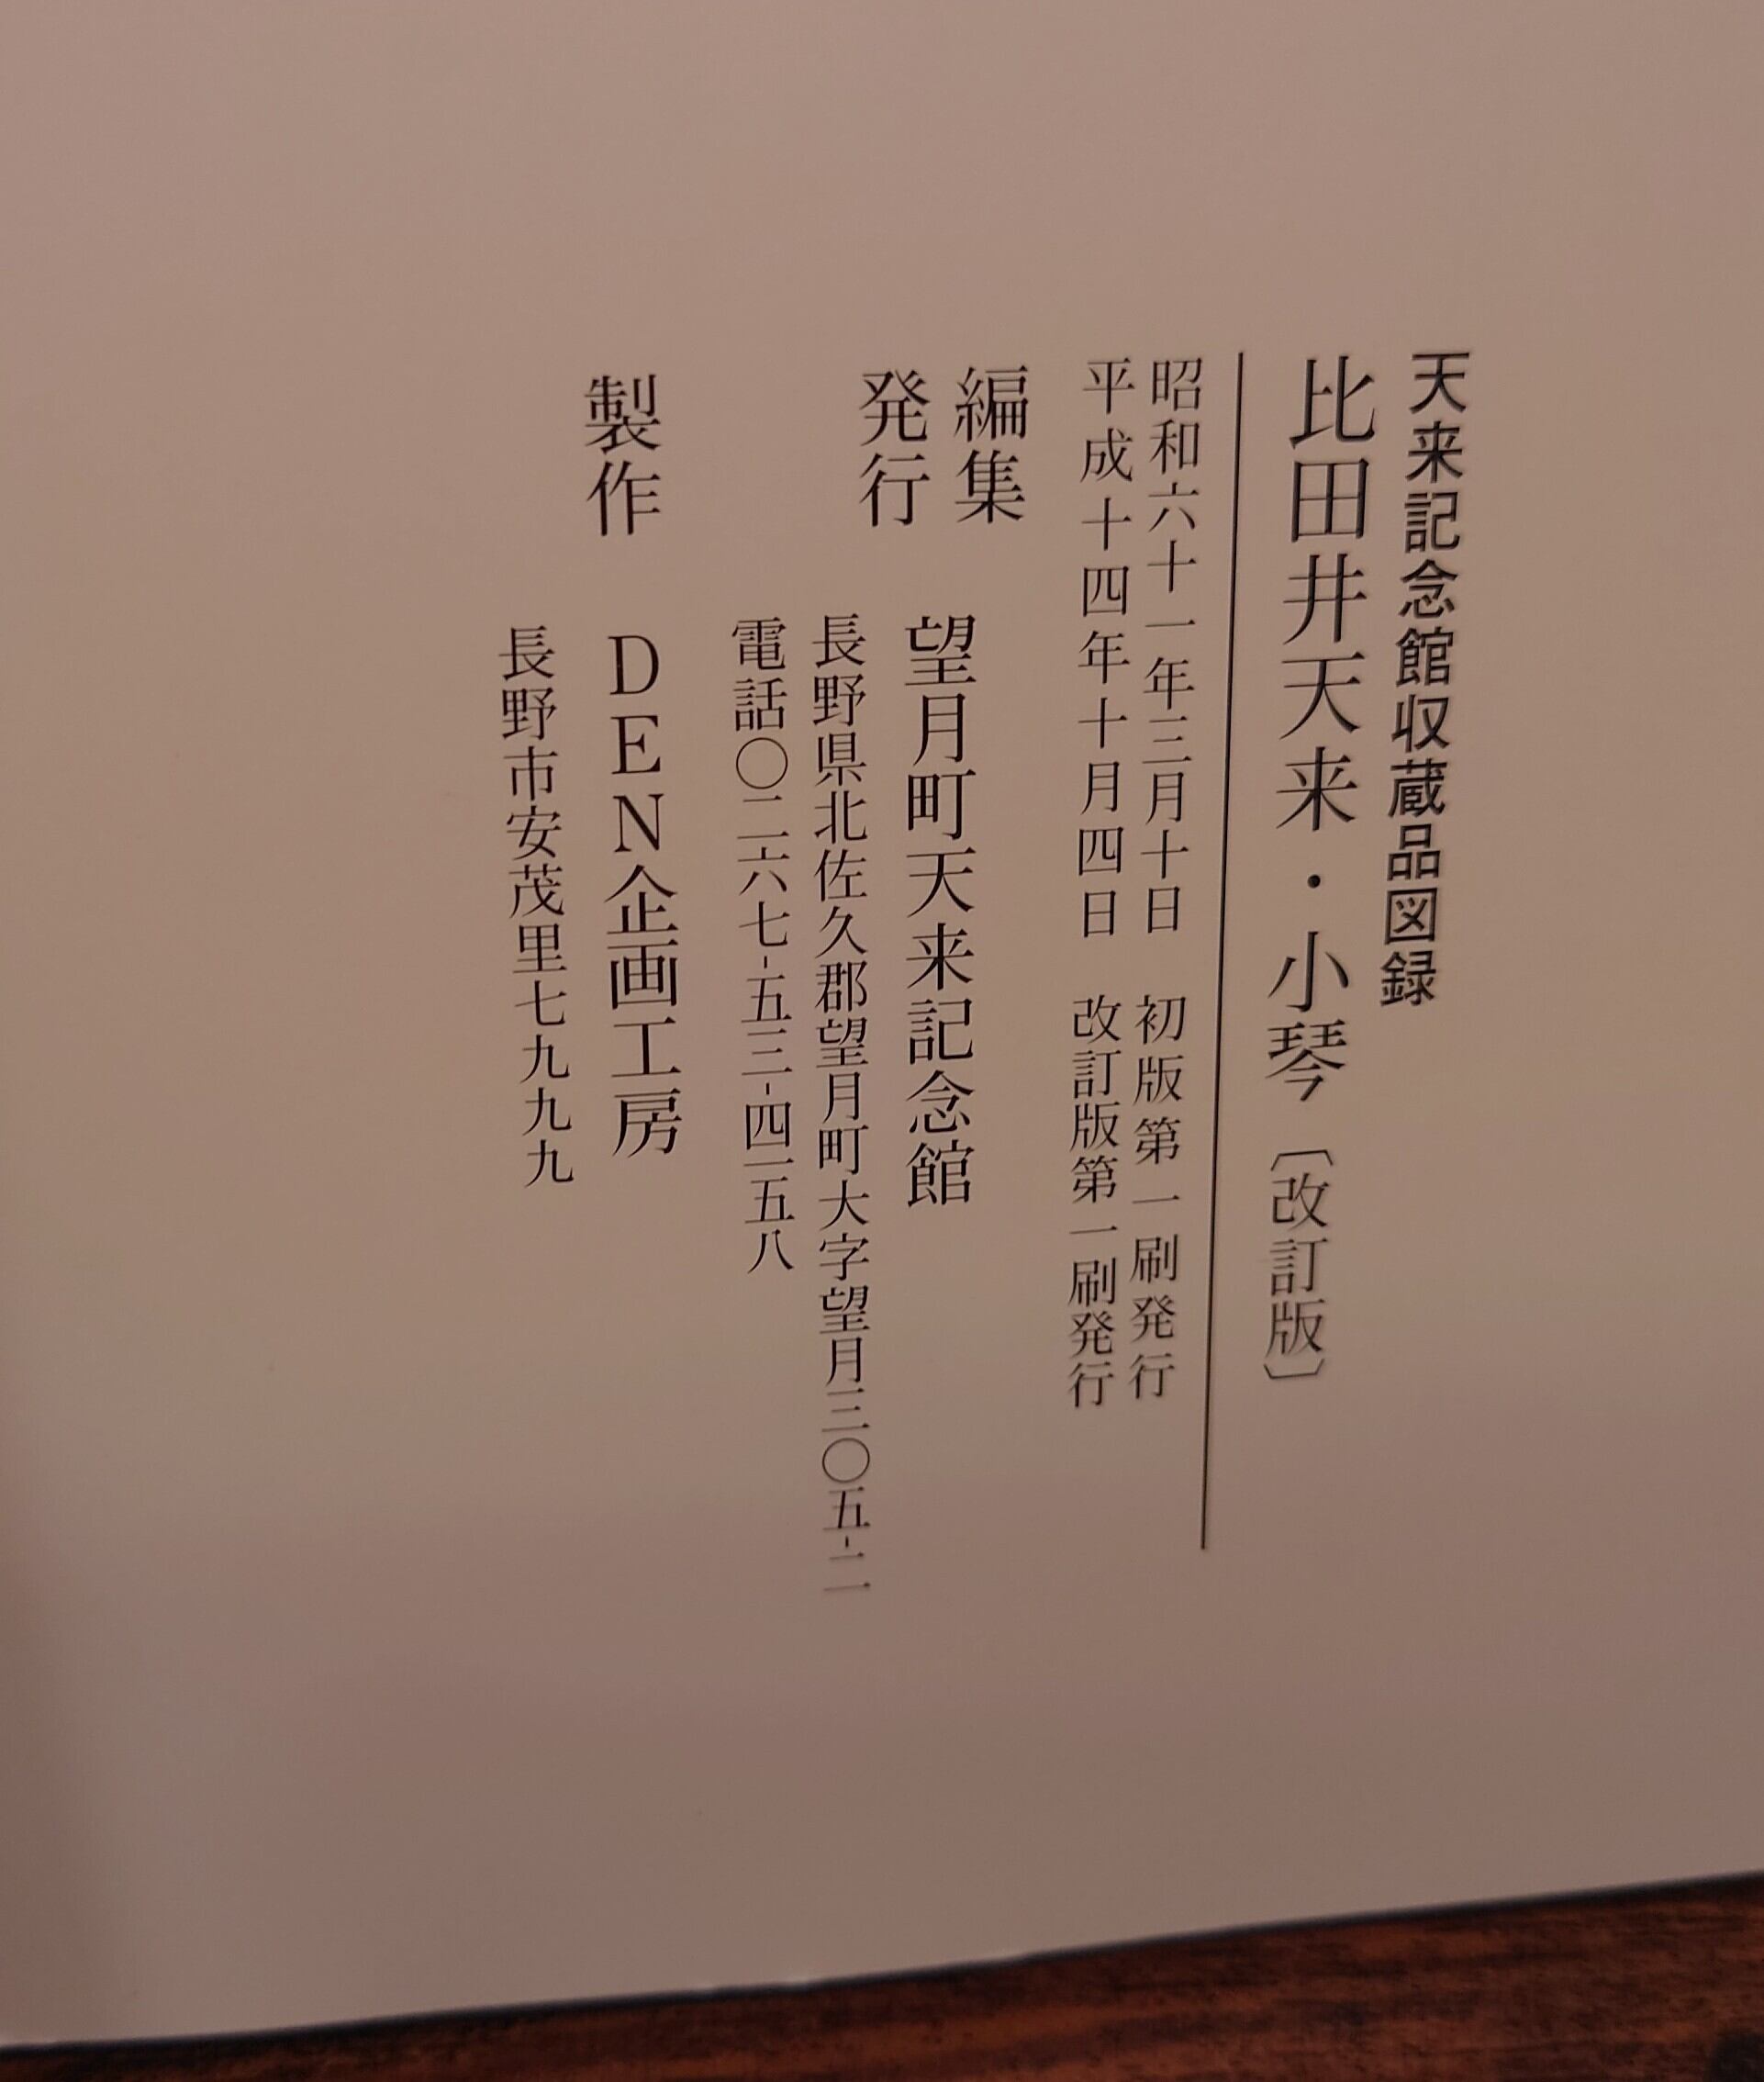 天来記念館収蔵品図録
比田井天来・小琴〔改訂版〕
昭和六十一年三月十日　初版第一刷発行
平成十四年十月四日　改訂版第一刷発行
編集
発行　望月町天来記念館
長野県北佐久郡望月町大字望月三〇五-二
電話〇二六七-五三-四一五八
製作　DEN企画工房
長野市安茂里七九九九